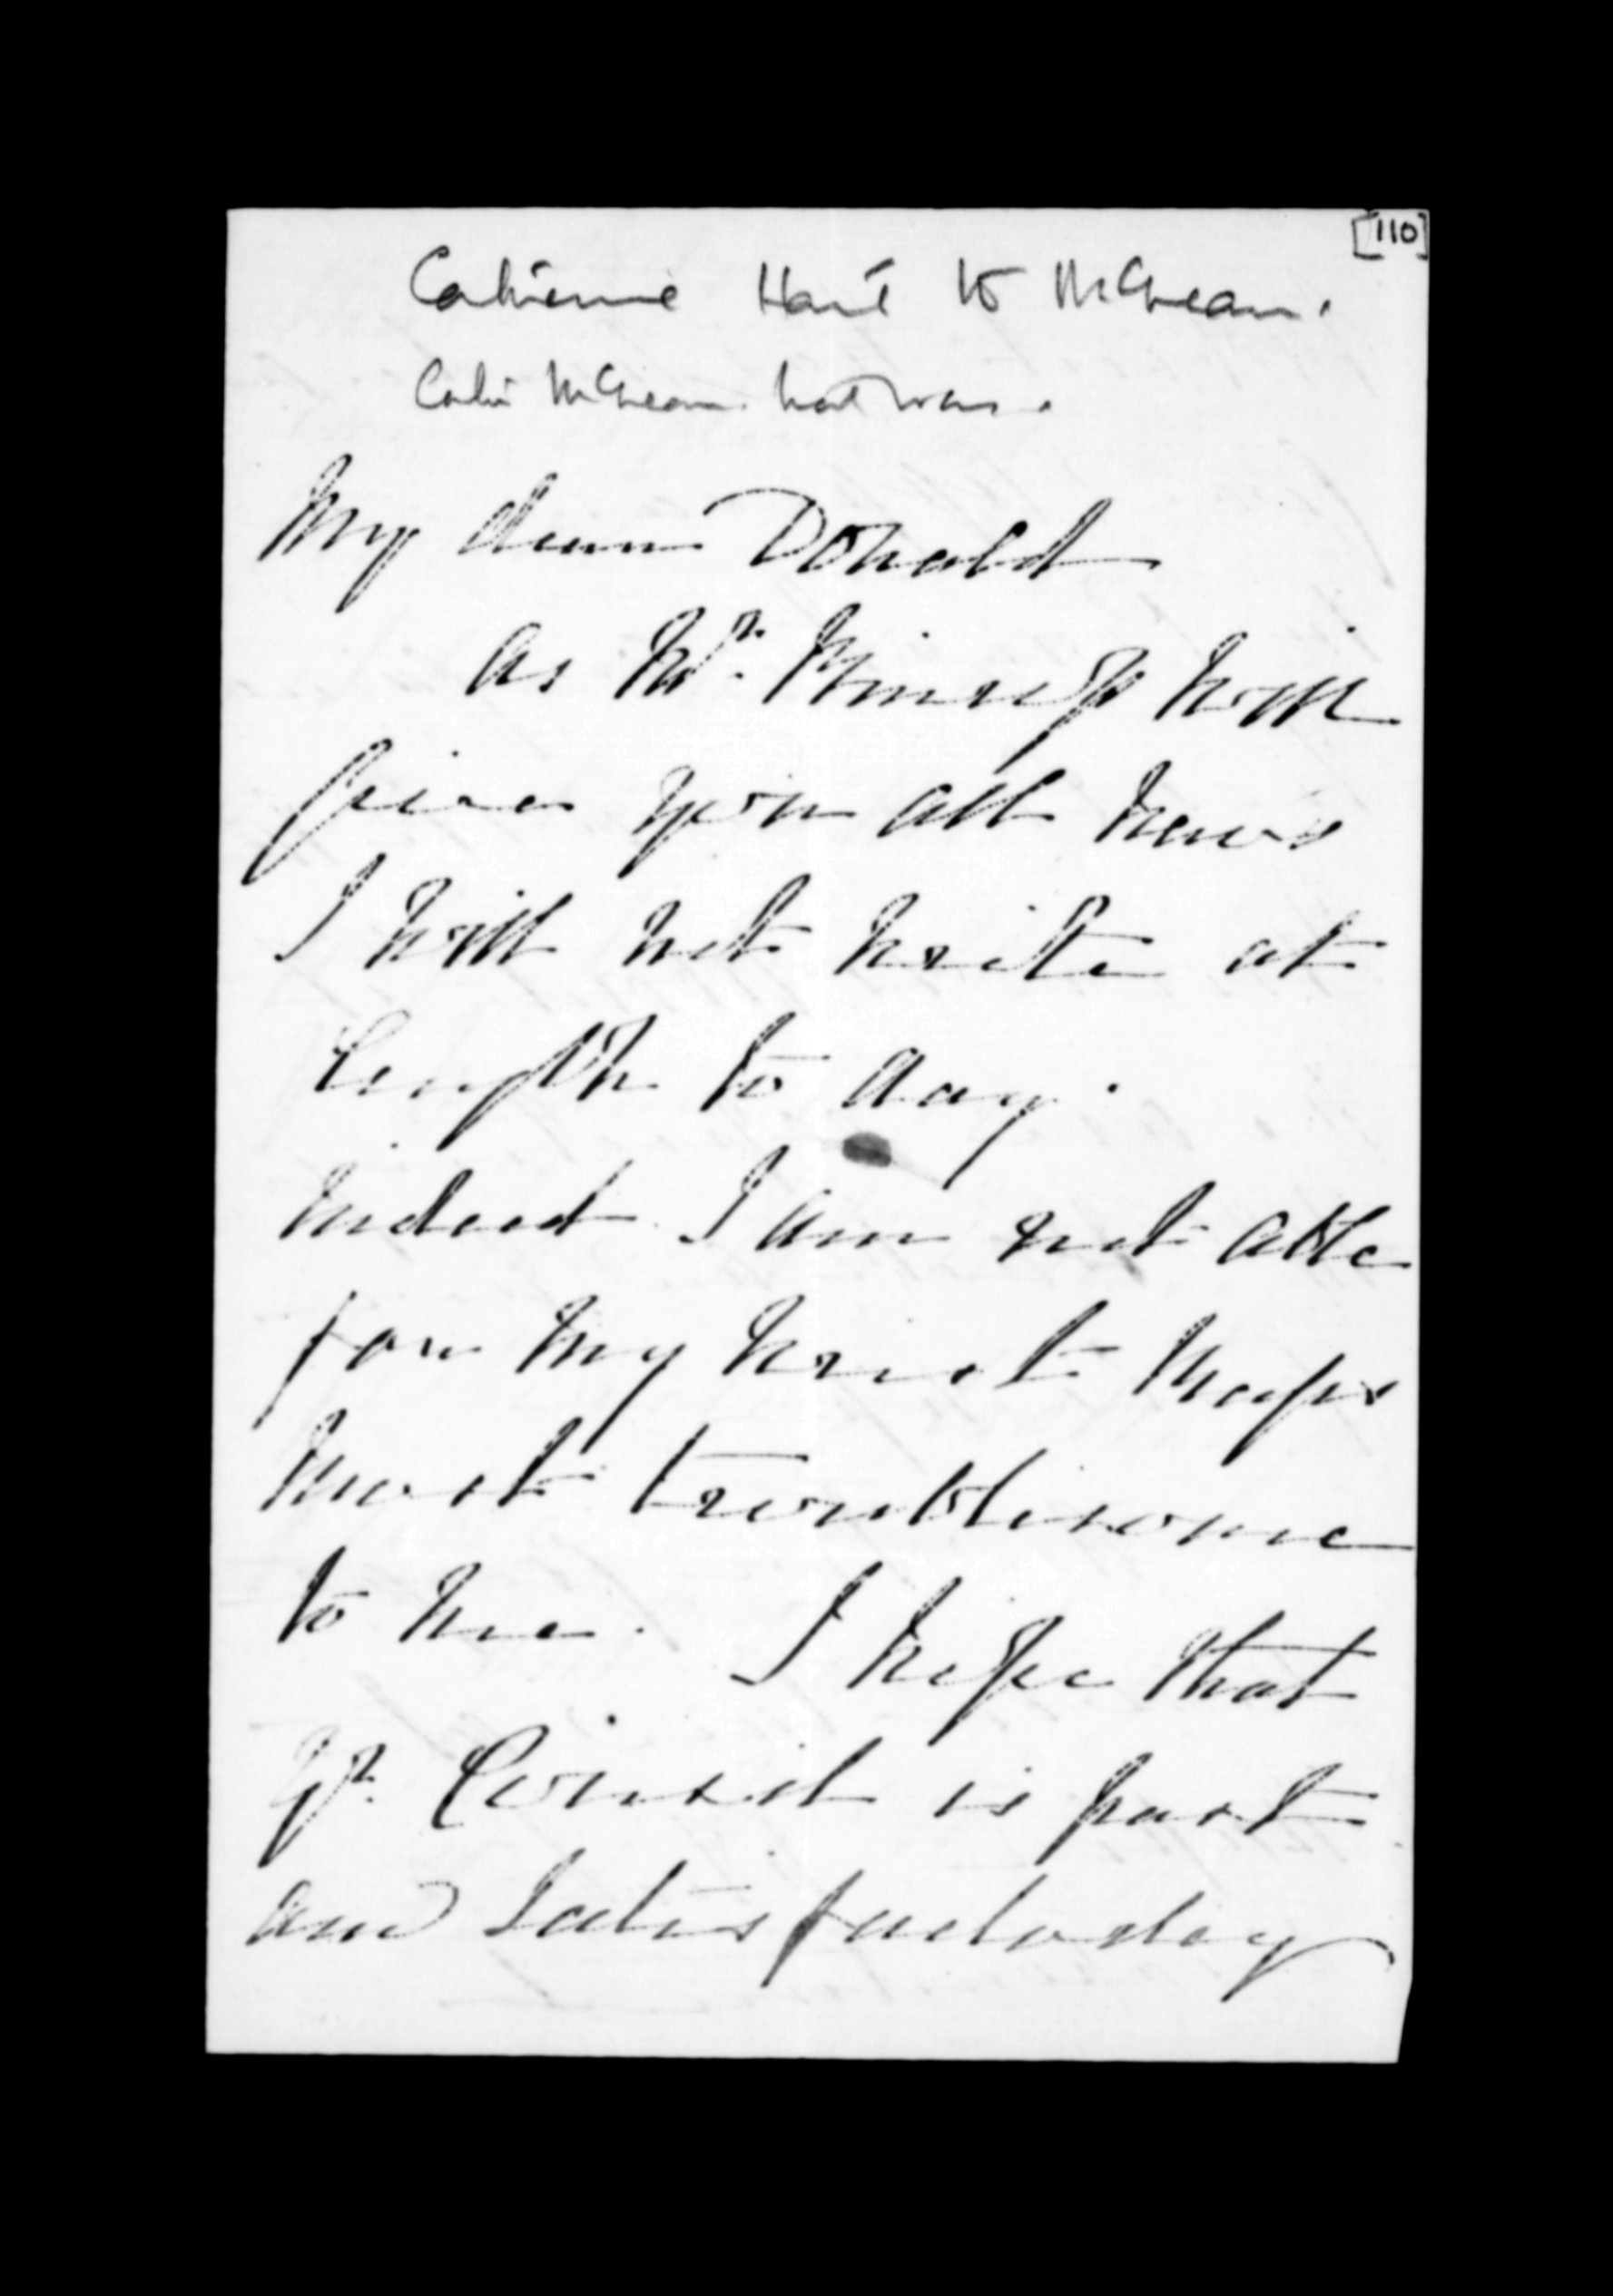 [110]
Catherine Hart to McLean.
Colin McLean
My dear Donald
as Mr. will
give you all news
I will not write at
length to day.
indeed I am not able
for my wrist keeps
most troublesome
to me. I hope that
yr. Council is past
and satisfactorily